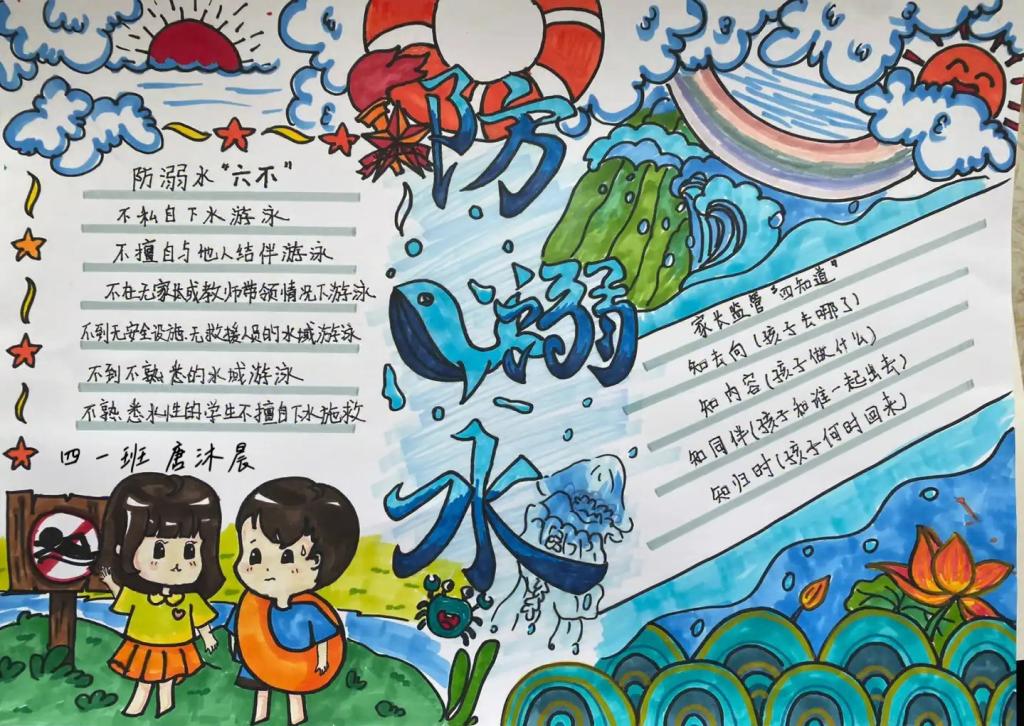 防溺水
防溺水“六不”
不私自下水游泳
不擅自与他人结伴游泳
不在无家长或教师带领情况下游泳
不到无安全设施、无救援人员的水域游泳
不到不熟悉的水域游泳
不熟悉水性的学生不擅自下水施救
四一班 唐沐晨
家长监管“四知道”
知去向(孩子去哪了)
知内容(孩子做什么)
知同伴(孩子和谁一起出去)
知归时(孩子何时回来)